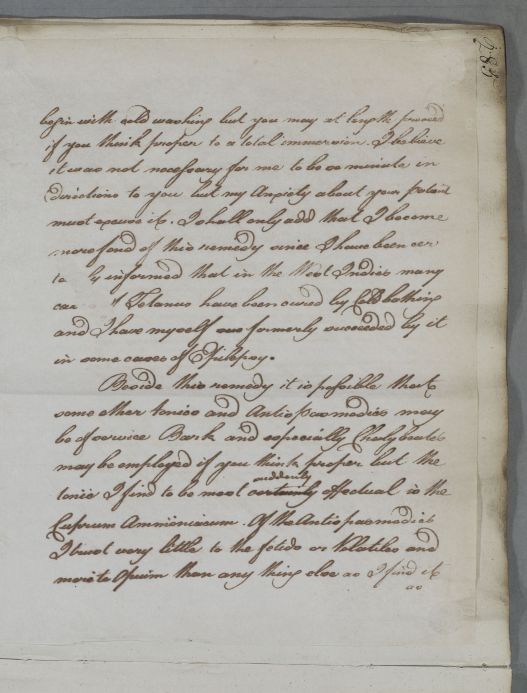 283
begin with cold washing but you may at length proceed
if you think proper to a total immersion. I believe
it was not necessary for me to be so minute in
directions to you but my Anxiety about your Patient
must excuse it. I shall only add that I become
more fond of this remedy since I have been cer
ta ly informed that in the West Indies many
ca f Tetanus have been cured by Cold bathing
and I have myself formerly succeeded by it
in some cases of Epilepsy.
Beside this remedy it is possible that
some other tonics and Antispasmodics may
be of service Bark and especially Chalybeats
may be employed if you think proper but the
suddenly
tonic I find to be most certainly effectual is the
Cuprum Ammoniacum. Of the Antispasmodics
I trust very little to the fetids or Volatiles and
more to Opium than any thing else as I find it
as